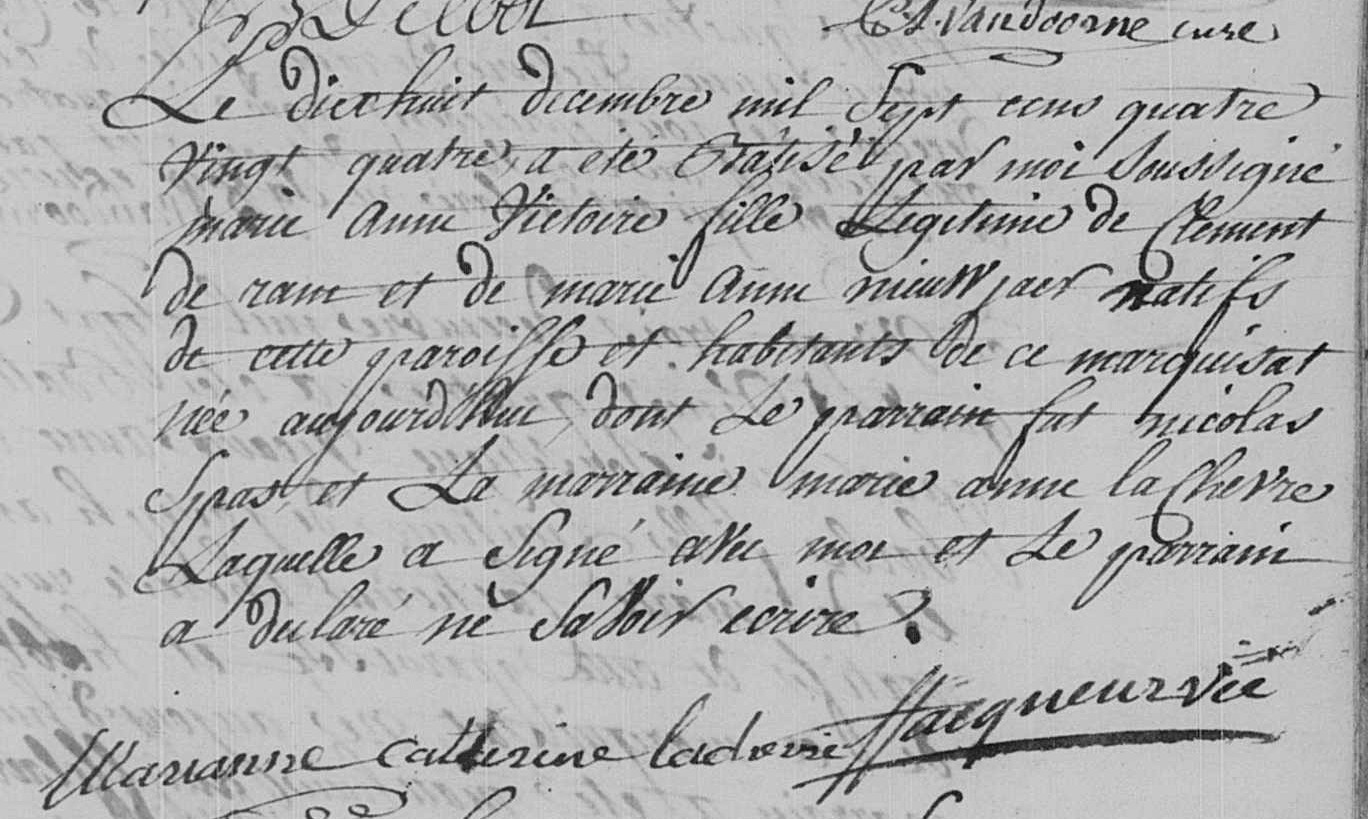 C A vandoorne curé
Le dixhuit decembre mil Sept cens quatre
Vingt quatre, a eté Batisé par moi Soussigné
marie Anne Victoire fille Legitime de Clement
de ram et de marie Anne nieuwjaer natifs
de cette paroisse et habitants de ce marquisat
née aujourd'huc dont Le parrain fut nicolas
Spas et La marraine marie anne la Chevre
Laquelle a Signé avec moi et Le parrain
a declaré ne Savoir ecrire.
Marianne catherine lachevre Hacqueur vic